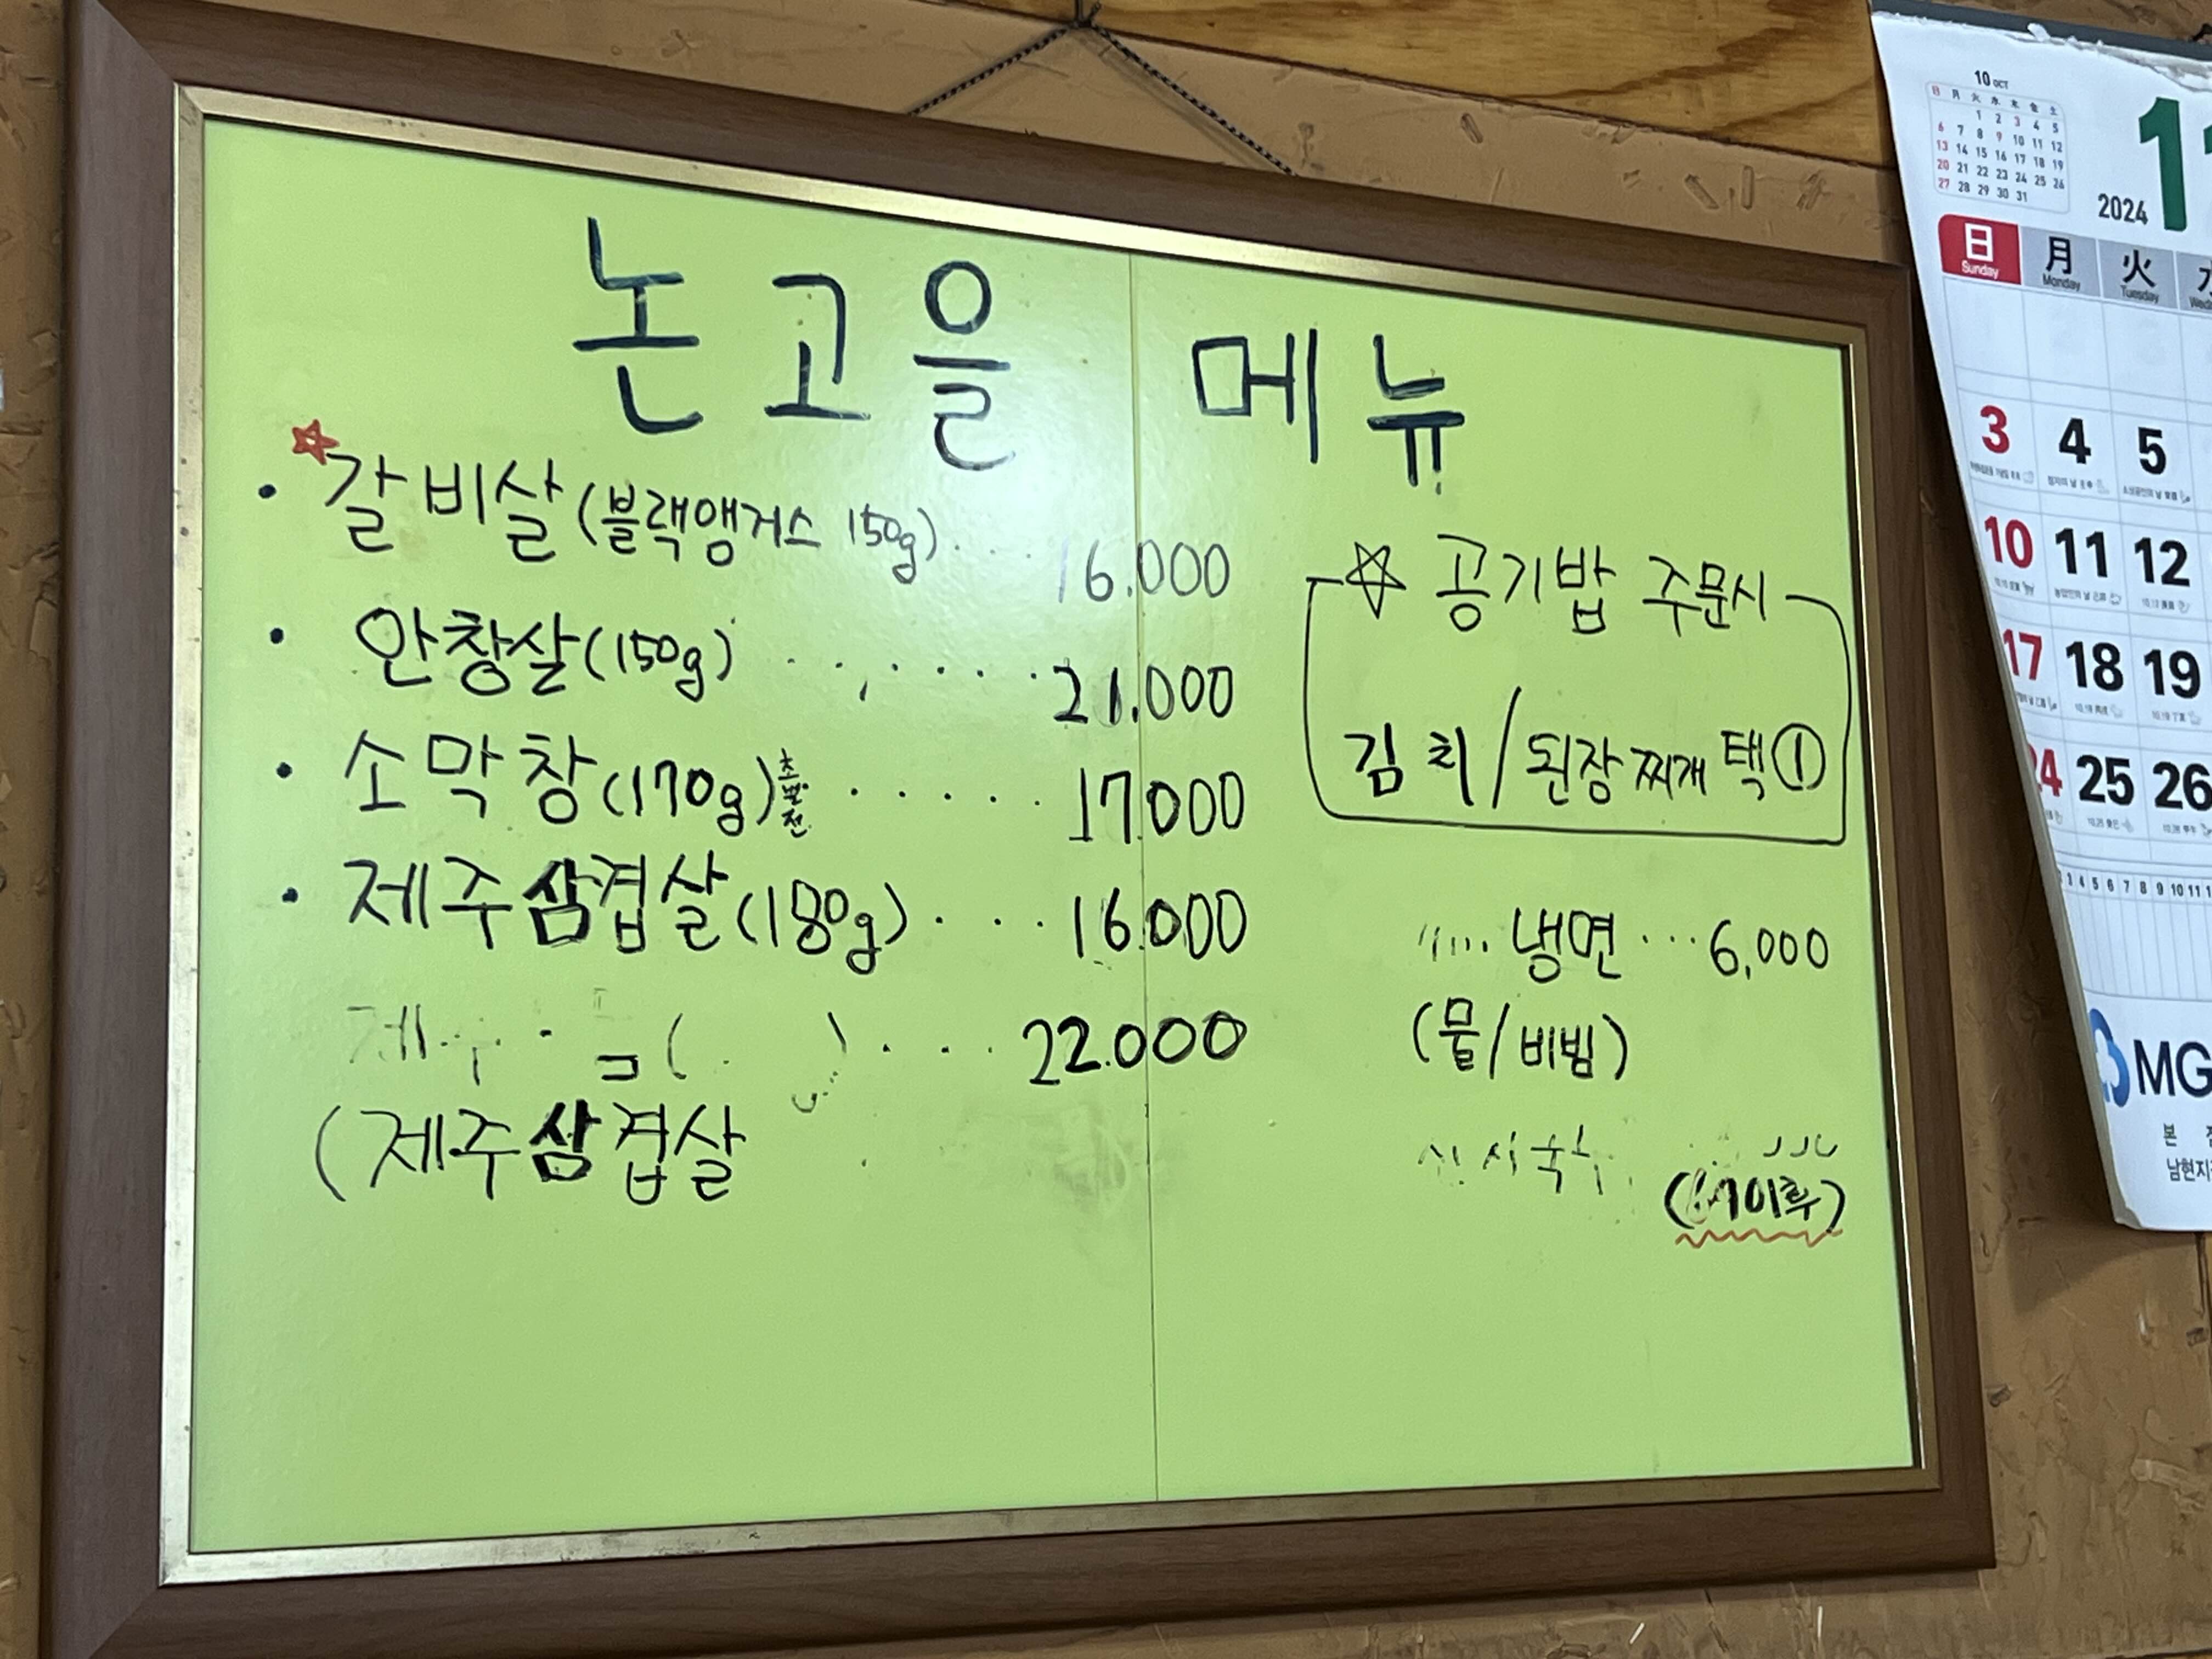 논고을 메뉴
· 갈비살(블랙앵거스 150g)... 16.000
· 안창살(150g) ....... 21.000
· 소막창(170g)초벌전 ..... 17000
· 제주삼겹살(180g).... 16.000
.... 22.000
(제주삼겹살
☆ 공기밥 주문시
김치/된장찌개 택①
냉면 ... 6,000
(물/비빔)
10 OCT
日 月 火 水 木 金 土
1 2 3 4 5
6 7 8 9 10 11 12
13 14 15 16 17 18 19
20 21 22 23 24 25 26
27 28 29 30 31
2024
11
日 月 火
Sunday Monday Tuesday
3 4 5
10 11 12
17 18 19
24 25 26
MG